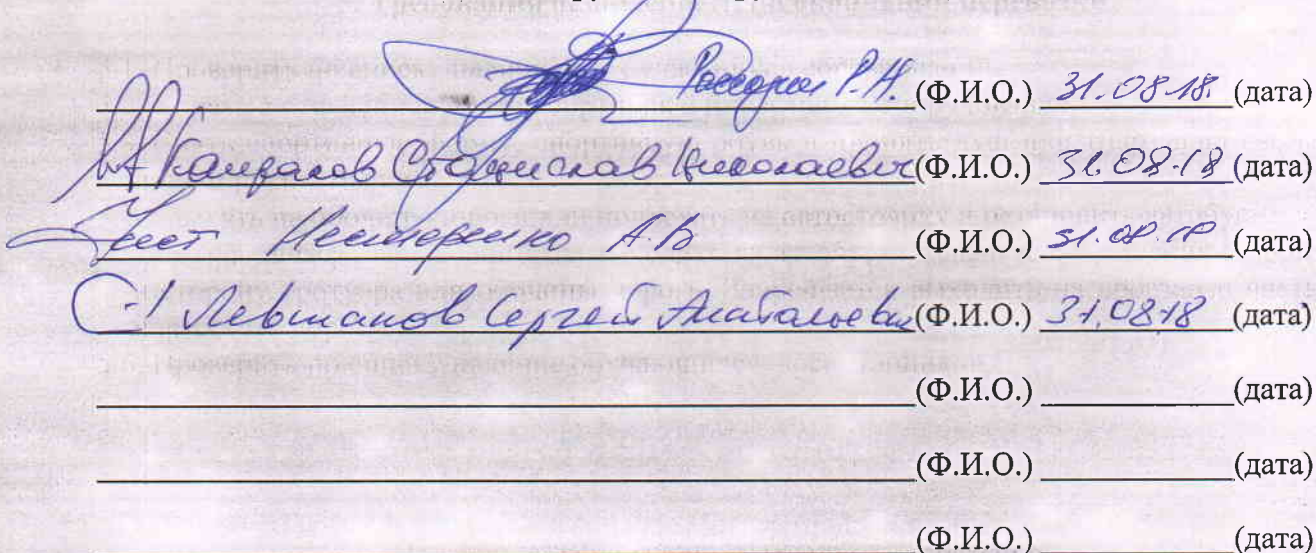 Р.Н. (Ф.И.О.) 31.08.18. (дата)
Станислав Николаевич (Ф.И.О.) 31.08.18 (дата)
Нест Нестеренко А.В (Ф.И.О.) 31.08.18 (дата)
Левшанов Сергей Анатольевич (Ф.И.О.) 31.08.18 (дата)
(Ф.И.О.) (дата)
(Ф.И.О.) (дата)
(Ф.И.О.) (дата)